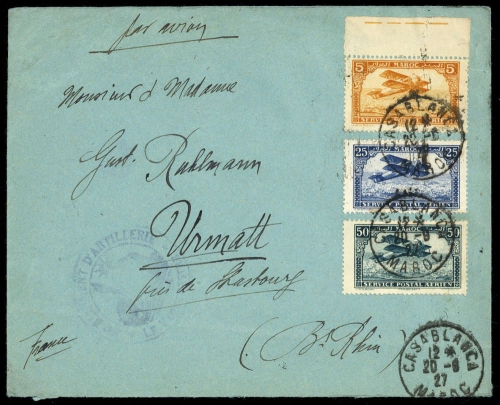 par avion
Monsieur & Madame
Gust. Rahlmann
Urmatt
près de Strasbourg
(Bs Rhin)
France
D'ARTILLERIE
5 MAROC 5
SERVICE POSTAL AERIEN
25 MAROC 25
SERVICE POSTAL AERIEN
50 MAROC 50
SERVICE POSTAL AERIEN
CASABLANCA
MAROC
CASABLANCA
MAROC
CASABLANCA
12 *
20 - 6
27
MAROC